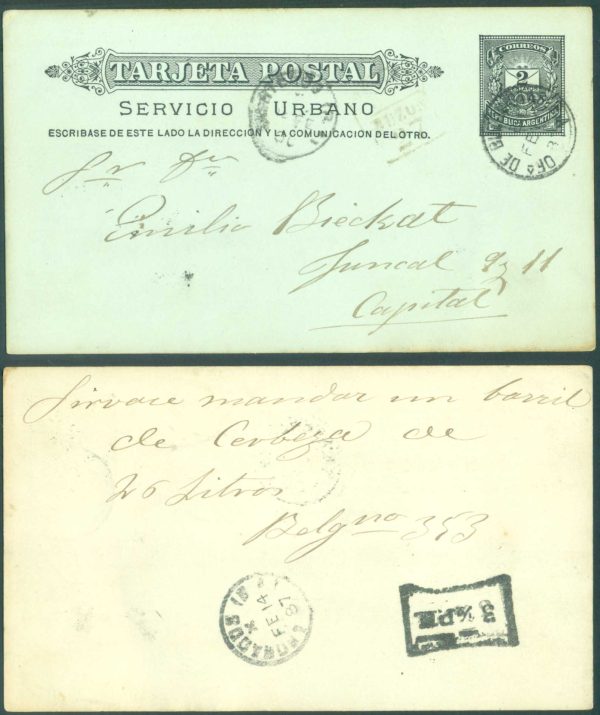 CORREOS
2
REPUBLICA ARGENTINA
TARJETA POSTAL
SERVICIO URBANO
ESCRIBASE DE ESTE LADO LA DIRECCION Y LA COMUNICACION DEL OTRO.
BUZON
OFA DE
FE
Sr Dn
Emilio Bieckat
Juncal 9 11
Capital
Sirvace mandar un barril
de Cerbeza de
26 Litros
Belgno 353
FE 14
87
3 ½ P.M.